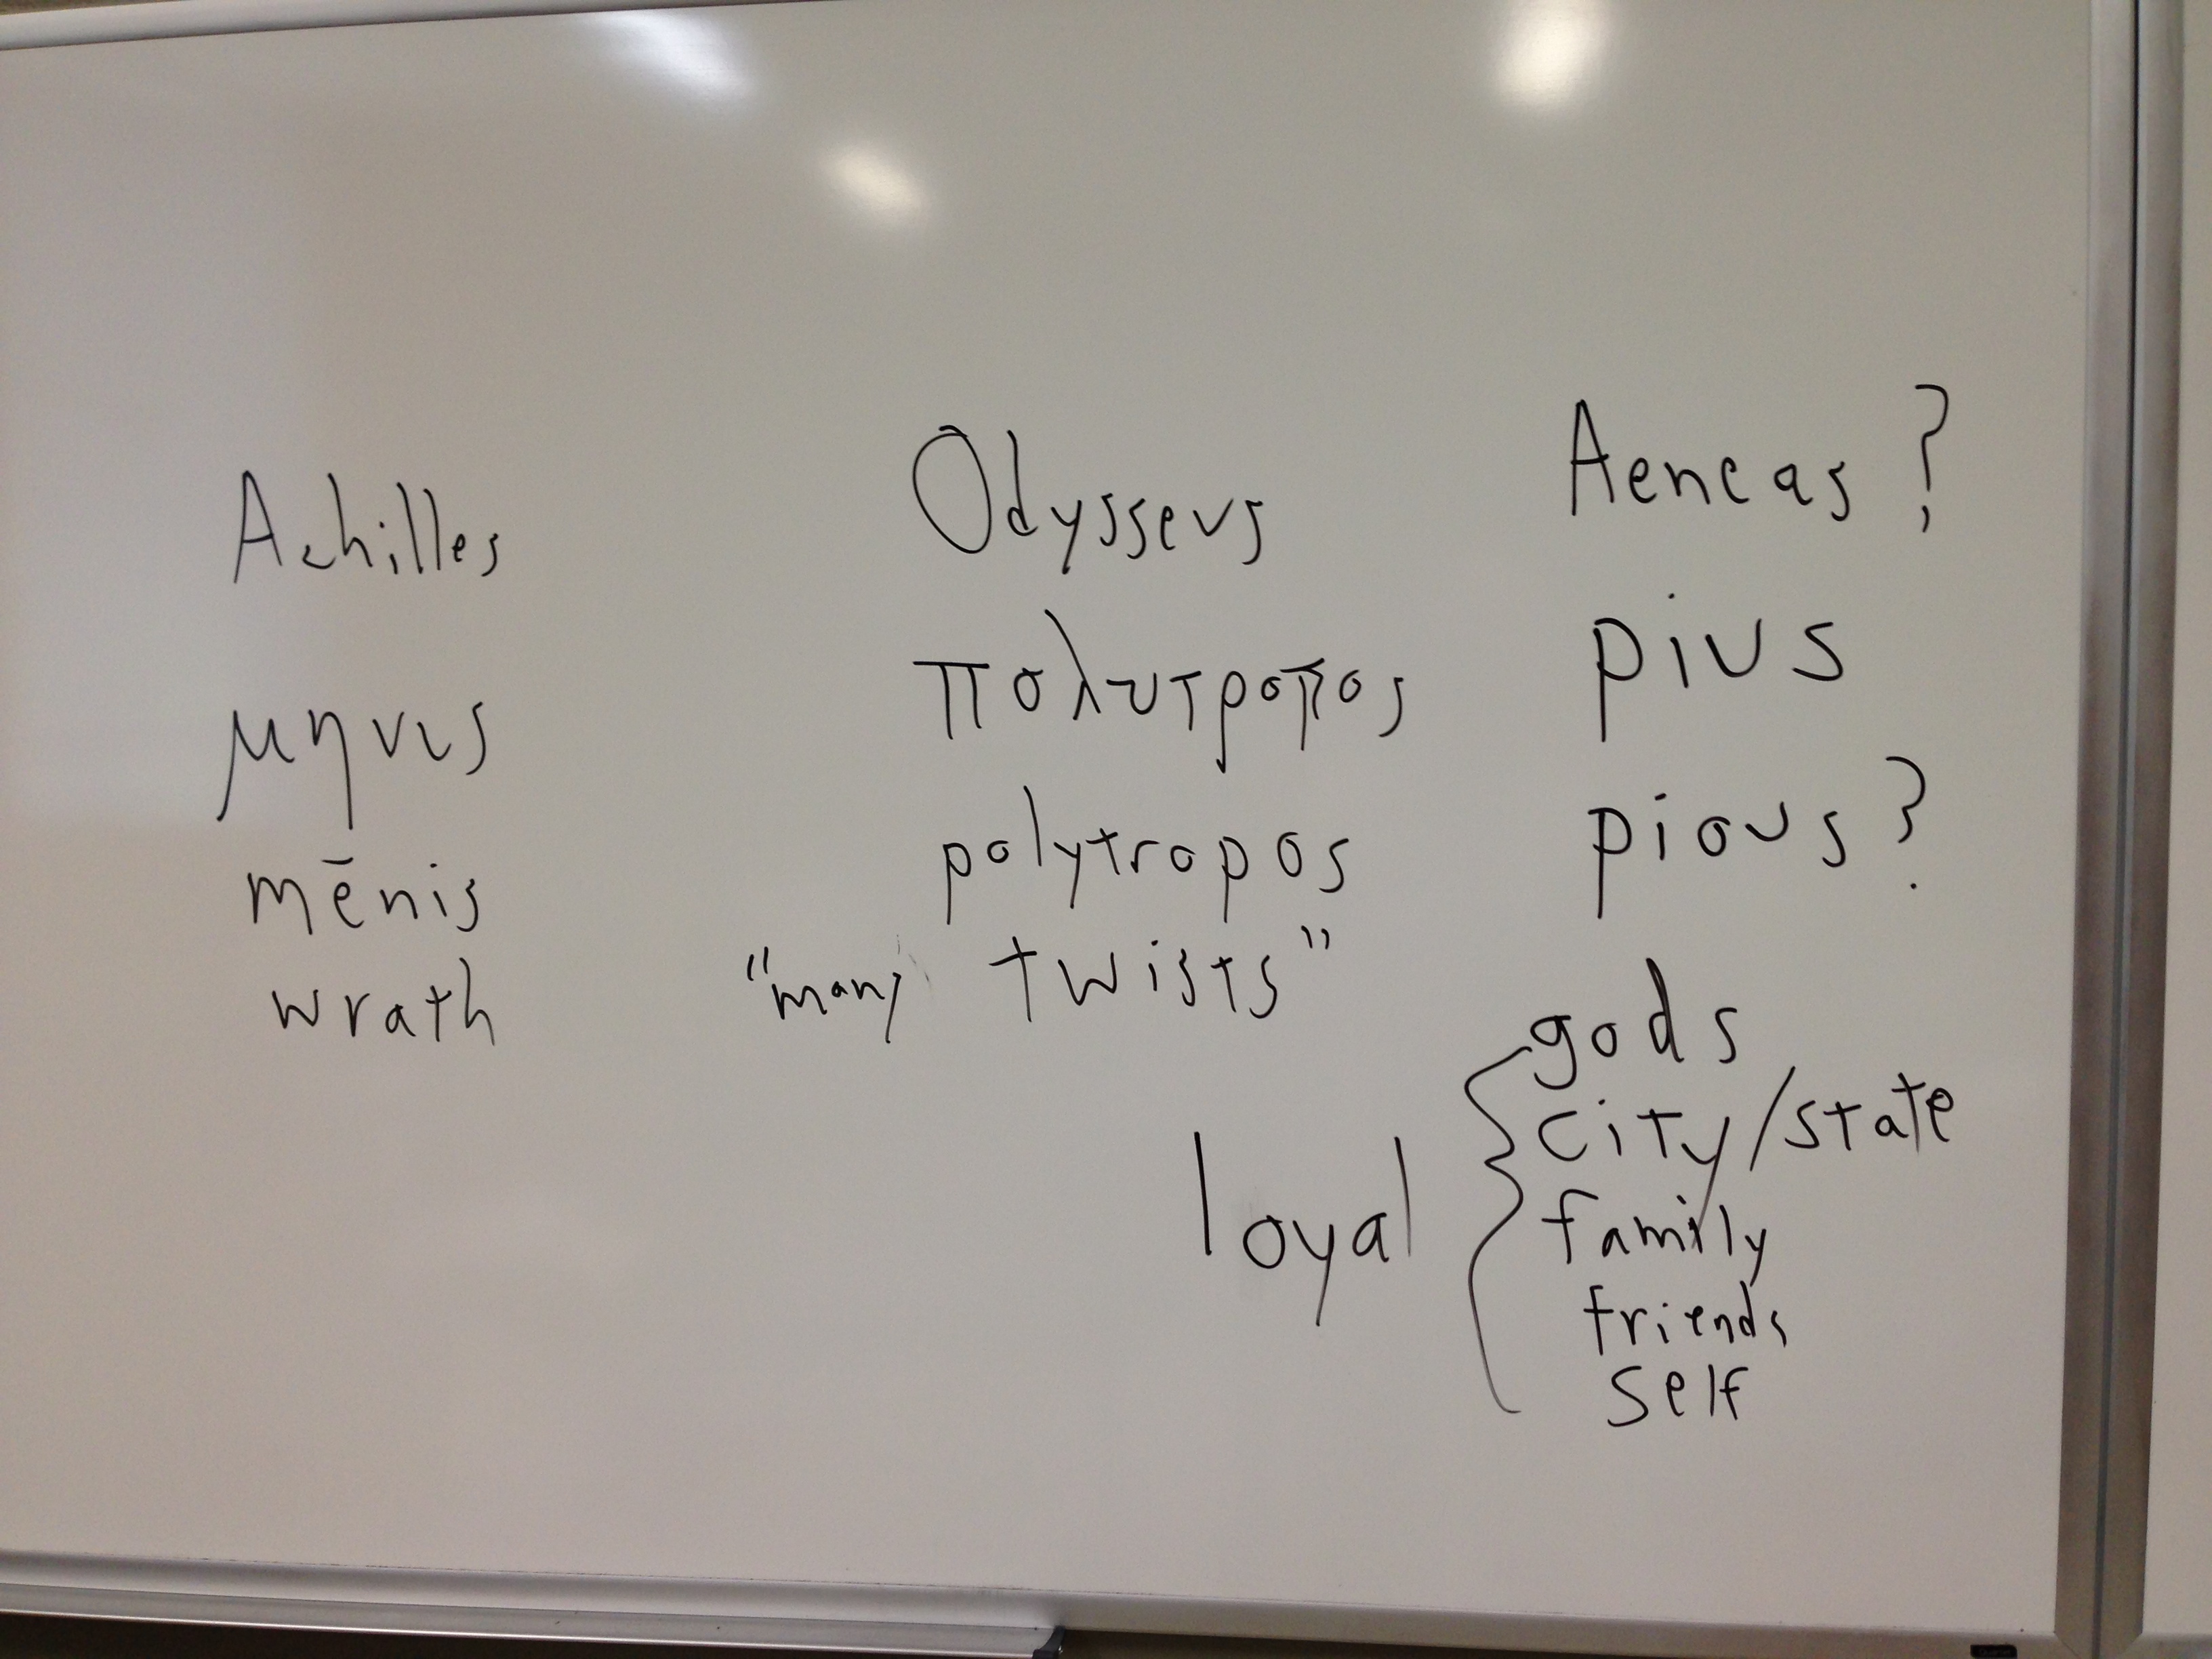 Achilles
μηνις
mēnis
wrath
Odysseus
πολυτροπος
polytropos
"many twists"
Aeneas?
pius
pious?
loyal
gods
city/state
family
friends
self